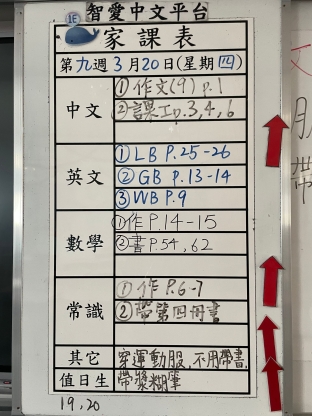 1E 智愛中文平台
家課表
第九週3月20日(星期四)
中文 ①作文(9) p.1
②課工p.3,4,6
英文 ①LB P.25-26
②GB P.13-14
③WB P.9
數學 ①作P.14-15
②書P.54,62
常識 ①作P.6-7
②帶第四冊書
其它 穿運動服,不用帶書,
值日生 帶漿糊筆
19,20